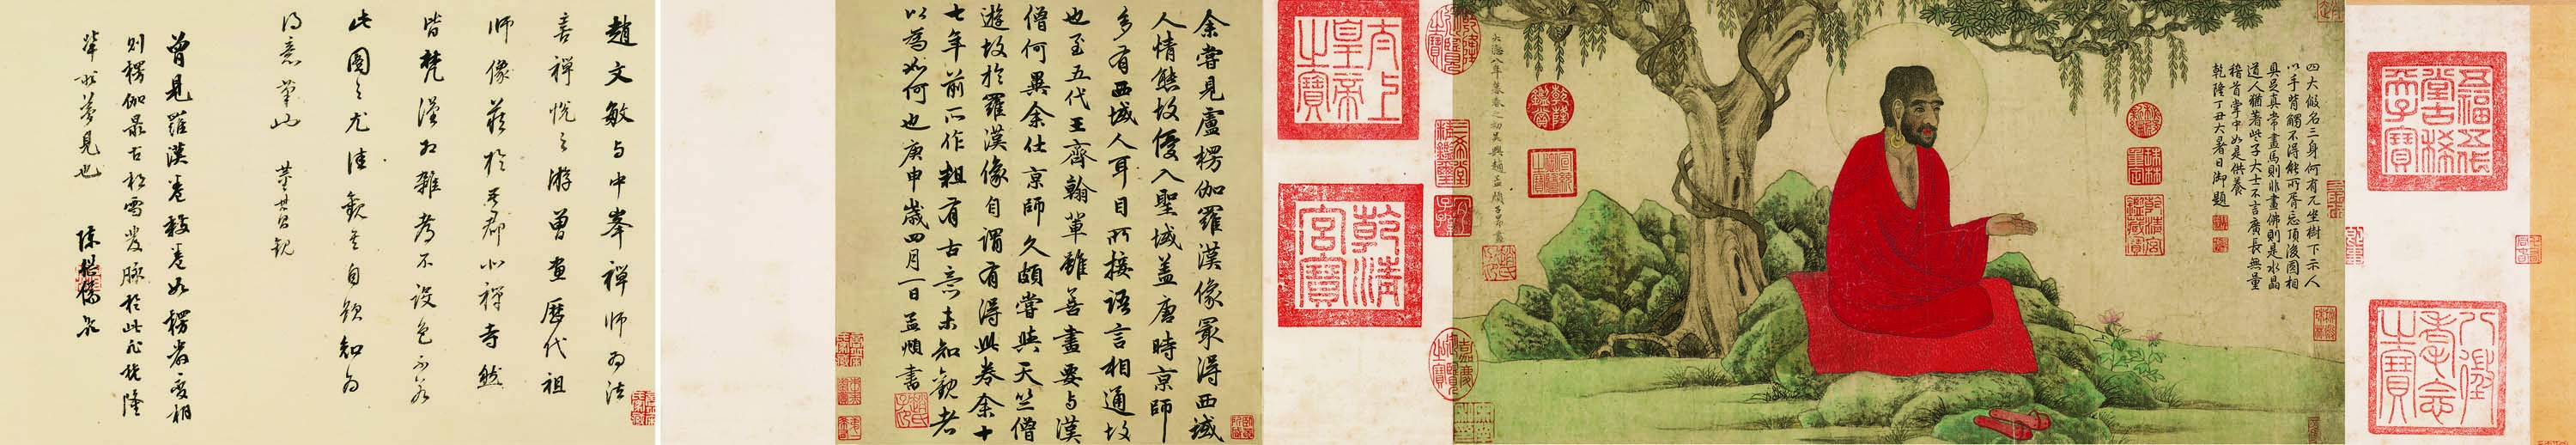 五福五代
堂古稀
天子寶
八徵
耄念
之寶
四大假名三身何有兀坐樹下示人
以手背觸不得能所胥忘頂後圓相
具足真常畫馬則非畫佛則是水晶
道人猶著些子大士不言廣長無量
稽首掌中如是供養
乾隆丁丑大暑日御題
大德八年暮春之初吳興趙孟頫子昂畫
太上
皇帝
之寶
乾清
宮寶
余嘗見盧楞伽羅漢像最得西域
人情態故優入聖域蓋唐時京師
多有西域人耳目所接語言相通故
也至五代王齊翰輩雖善畫要與漢
僧何異余仕京師久頗嘗與天竺僧
遊故於羅漢像自謂有得此卷余十
七年前所作粗有古意未知觀者
以為如何也庚申歲四月一日孟頫書
趙文敏與中峯禪師為法
喜禪悅之游曾畫歷代祖
師像藏於吾郡小禪寺然
皆梵漢相雜者不設色不若
此圖之尤佳觀其自題知為
得意筆也 董其昌觀
曾見羅漢卷數卷如楞嚴變相
則楞伽最古松雪發脉於此
輩所夢見也 陳繼儒